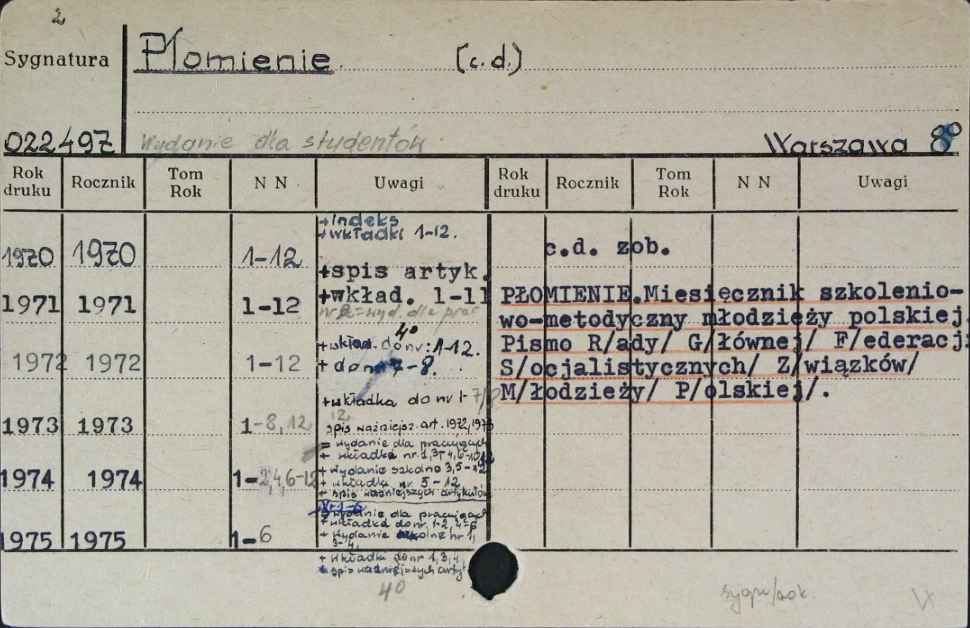 2
Sygnatura
Płomienie (c.d.)
022497
Wydanie dla studentów
Warszawa 8°
Rok druku Rocznik Tom Rok N N Uwagi Rok druku Rocznik Tom Rok N N Uwagi
+ indeks
+ wkładki 1-12.
1970 1970 1-12
+spis artyk.
1971 1971 1-12 +wkład. 1-11
4°
+ wkład. do nr: 1-12.
1972 1972 1-12 + do nr 7-8.
+ wkładka do nr 1-7/8
12
1973 1973 1-8, 12 spis ważniejsz. art. 1972, 1973
= wydanie dla pracujących
+ wkładka nr 1,3
+ wydanie szkolne 3,5-12
1974 1974 1-2,4,6-12 + wkładka nr 5-12
+ spis ważniejszych artykułów
wydanie dla pracujących
+ wkładka do nr. 1-2, 4-6
1975 1975 1-6 + wydanie szkolne nr 1,
3-4,
+ wkładki do nr 1,3,4,
+ spis ważniejszych artyk
4°
c.d. zob.
PŁOMIENIE.Miesięcznik szkolenio-
wo-metodyczny młodzieży polskiej.
Pismo R/ady/ G/łównej/ F/ederacji
S/ocjalistycznych/ Z/wiązków/
M/łodzieży/ P/olskiej/.